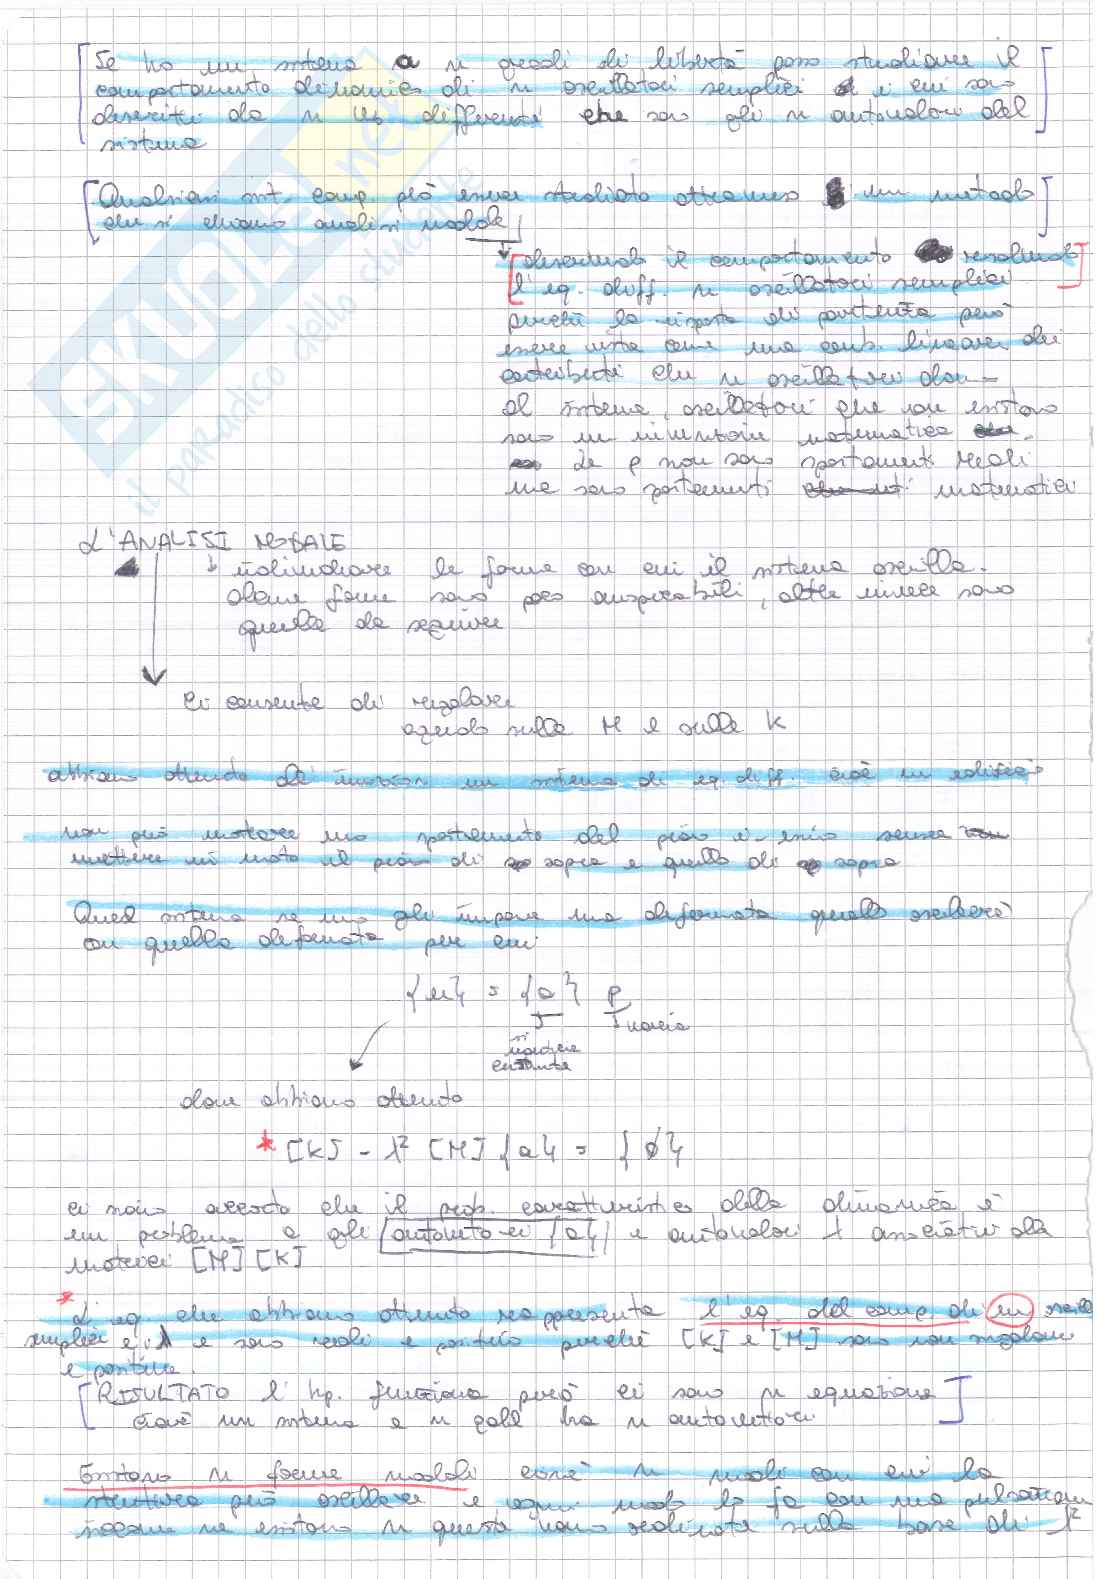 Se ho un sistema a n gradi di libertà posso studiare il
comportamento dinamico di n oscillatori semplici e cui sono
descritti da n ω differenti che sono gli n autovalori del
sistema
Qualsiasi sist. comp. può essere studiato attraverso un metodo
che si chiama analisi modale
descrivendo il comportamento risolvendo
l'eq. diff. n oscillatori semplici
perché la risposta di partenza può
essere vista come una comb. lineare dei
contributi che n oscillatori danno
al sistema, oscillatori che non esistono
sono un'invenzione matematica
Le p non sono spostamenti reali
ma sono spostamenti matematici
L'ANALISI MODALE
individuare le forme con cui il sistema oscilla.
alcune forme sono poco auspicabili, altre invece sono
quelle da seguire
Ci consente di regolare
agendo sulla M e sulla K
abbiamo ottenuto un sistema di eq. diff. cioè un edificio
non può mostrare uno spostamento del piano i-esimo senza
mettere in moto il piano di sopra e quello di sopra
Quel sistema se uno gli impone una deformata quello oscillerà
con quella deformata per cui
{u} = {a} p
varia
si
mantiene
costante
dove abbiamo ottenuto
* [K] - λ² [M] {a} = {0}
ci siamo accorti che il prob. caratteristico della dinamica è
un problema a gli autovettori {a} e autovalori λ associati alla
matrici [M] [K]
* L'eq. che abbiamo ottenuto rappresenta l'eq. del comp. di un oscill.
semplici e i λ e sono reali e positivi perché [K] e [M] sono non singolari
e positive.
RISULTATO l'hp. funziona però ci sono n equazioni
cioè un sistema a n gdl ha n autovettori
Esistono n forme modali cioè n modi con cui la
struttura può oscillare e ogni modo lo fa con una pulsazione
siccome ne esistono n queste vanno ordinate sulla base di λ²
SKUOLA.net
il paradiso dello studente